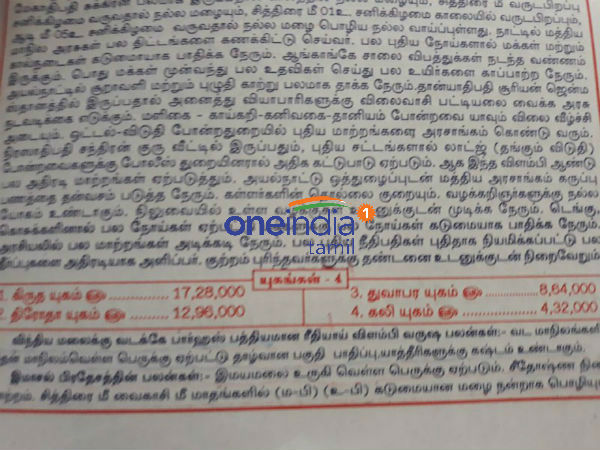 சனிக்கிழமை வருவதால் நல்ல மழையும், சித்திரை மீ 01உ, சனிக்கிழமை காலையில் வருடபிறப்பும்,
ஆடி மீ 05உ சனிக்கிழமை வருவதால் நல்ல மழை பொழிய நல்ல வாய்ப்புள்ளது. நாட்டில் மத்திய
மாநில அரசுகள் பல திட்டங்களை கணக்கிட்டு செய்வர். பல புதிய நோய்களால் மக்கள் மற்றும்
கால்நடைகள் கடுமையாக பாதிக்க நேரும். ஆங்காங்கே சாலை விபத்துக்கள் நடந்த வண்ணம்
இருக்கும். பொது மக்கள் முன்வந்து பல உதவிகள் செய்து பல உயிர்களை காப்பாற்ற நேரும்.
அயல்நாட்டில் சூறாவளி மற்றும் புழுதி காற்று பலமாக தாக்க நேரும்.தான்யாதிபதி சூரியன் ஜென்ம
ஸ்தானத்தில் இருப்பதால் அனைத்து வியாபாரிகளுக்கு விலைவாசி பட்டியலை வைக்க அரசு
நடவடிக்கை எடுக்கும். மளிகை - காய்கறி-கனிவகை-தானியம் போன்றவை யாவும் விலை வீழ்ச்சி
அடையும். ஒட்டல்-விடுதி போன்றதுறையில் புதிய மாற்றங்களை அரசாங்கம் கொண்டு வரும்.
நிரஸாதிபதி சந்திரன் குரு வீட்டில் இருப்பதும், புதிய சட்டங்களால் லாட்ஜ் (தங்கும் விடுதி)
போன்றவைகளுக்கு போலீஸ் துறையினரால் அதிக கட்டுபாடு ஏற்படும். ஆக இந்த விளம்பி ஆண்டு
பல அதிரடி மாற்றங்கள் ஏற்படுத்தும். அயல்நாட்டு ஒத்துழைப்புடன் மத்திய அரசாங்கம் கருப்பு
பணத்தை தன்வசம் படுத்த நேரும். கள்ளர்களின் தொல்லை குறையும். வழக்கறிஞர்களுக்கு நல்ல
யோகம் உண்டாகும். நிலுவையில் உள்ள வழக்குகள் உடனுக்குடன் முடிக்க நேரும். டெங்கு,
கொசுவினால் பல நோய்கள் ஏற்பட்டு நோய்கள் கடுமையாக பாதிக்க நேரும்.
அரசியலில் பல மாற்றங்கள் அடிக்கடி நேரும். பல புதிய நீதிபதிகள் புதிதாக நியமிக்கப்பட்டு பல
தீர்ப்புகளை அதிரடியாக அளிப்பர். குற்றம் புரிந்தவர்களுக்கு தண்டனை உடனுக்குடன் நிறைவேறும்
oneindia 1
தமிழ்
யுகங்கள் - 4
1. கிருத யுகம் ............... 17,28,000
2. திரேதா யுகம் ............. 12,96,000
3. துவாபர யுகம் ............... 8,64,000
4. கலி யுகம் ............... 4,32,000
விந்திய மலைக்கு வடக்கே பார்ஹஸ் பத்தியமான ரீதியாய் விளம்பி வருஷ பலன்கள்:- வட மாநிலங்களி
தன் மாநிலம்வெள்ள பெருக்கு ஏற்பட்டு தாழ்வான பகுதி பாதிப்பு,யாத்ரீகளுக்கு கஷ்டம் உண்டாகும்.
இமாலய பிரதேசத்தின் பலன்கள்:- இமயமலை உருகி வெள்ள பெருக்கு ஏற்படும். சீதோஷ்ண நிலை
மாற்றம். சித்திரை மீ வைகாசி மீ மாதங்களில் (ம-பி) (உ-பி) கடுமையான மழை நன்றாக பொழியும்